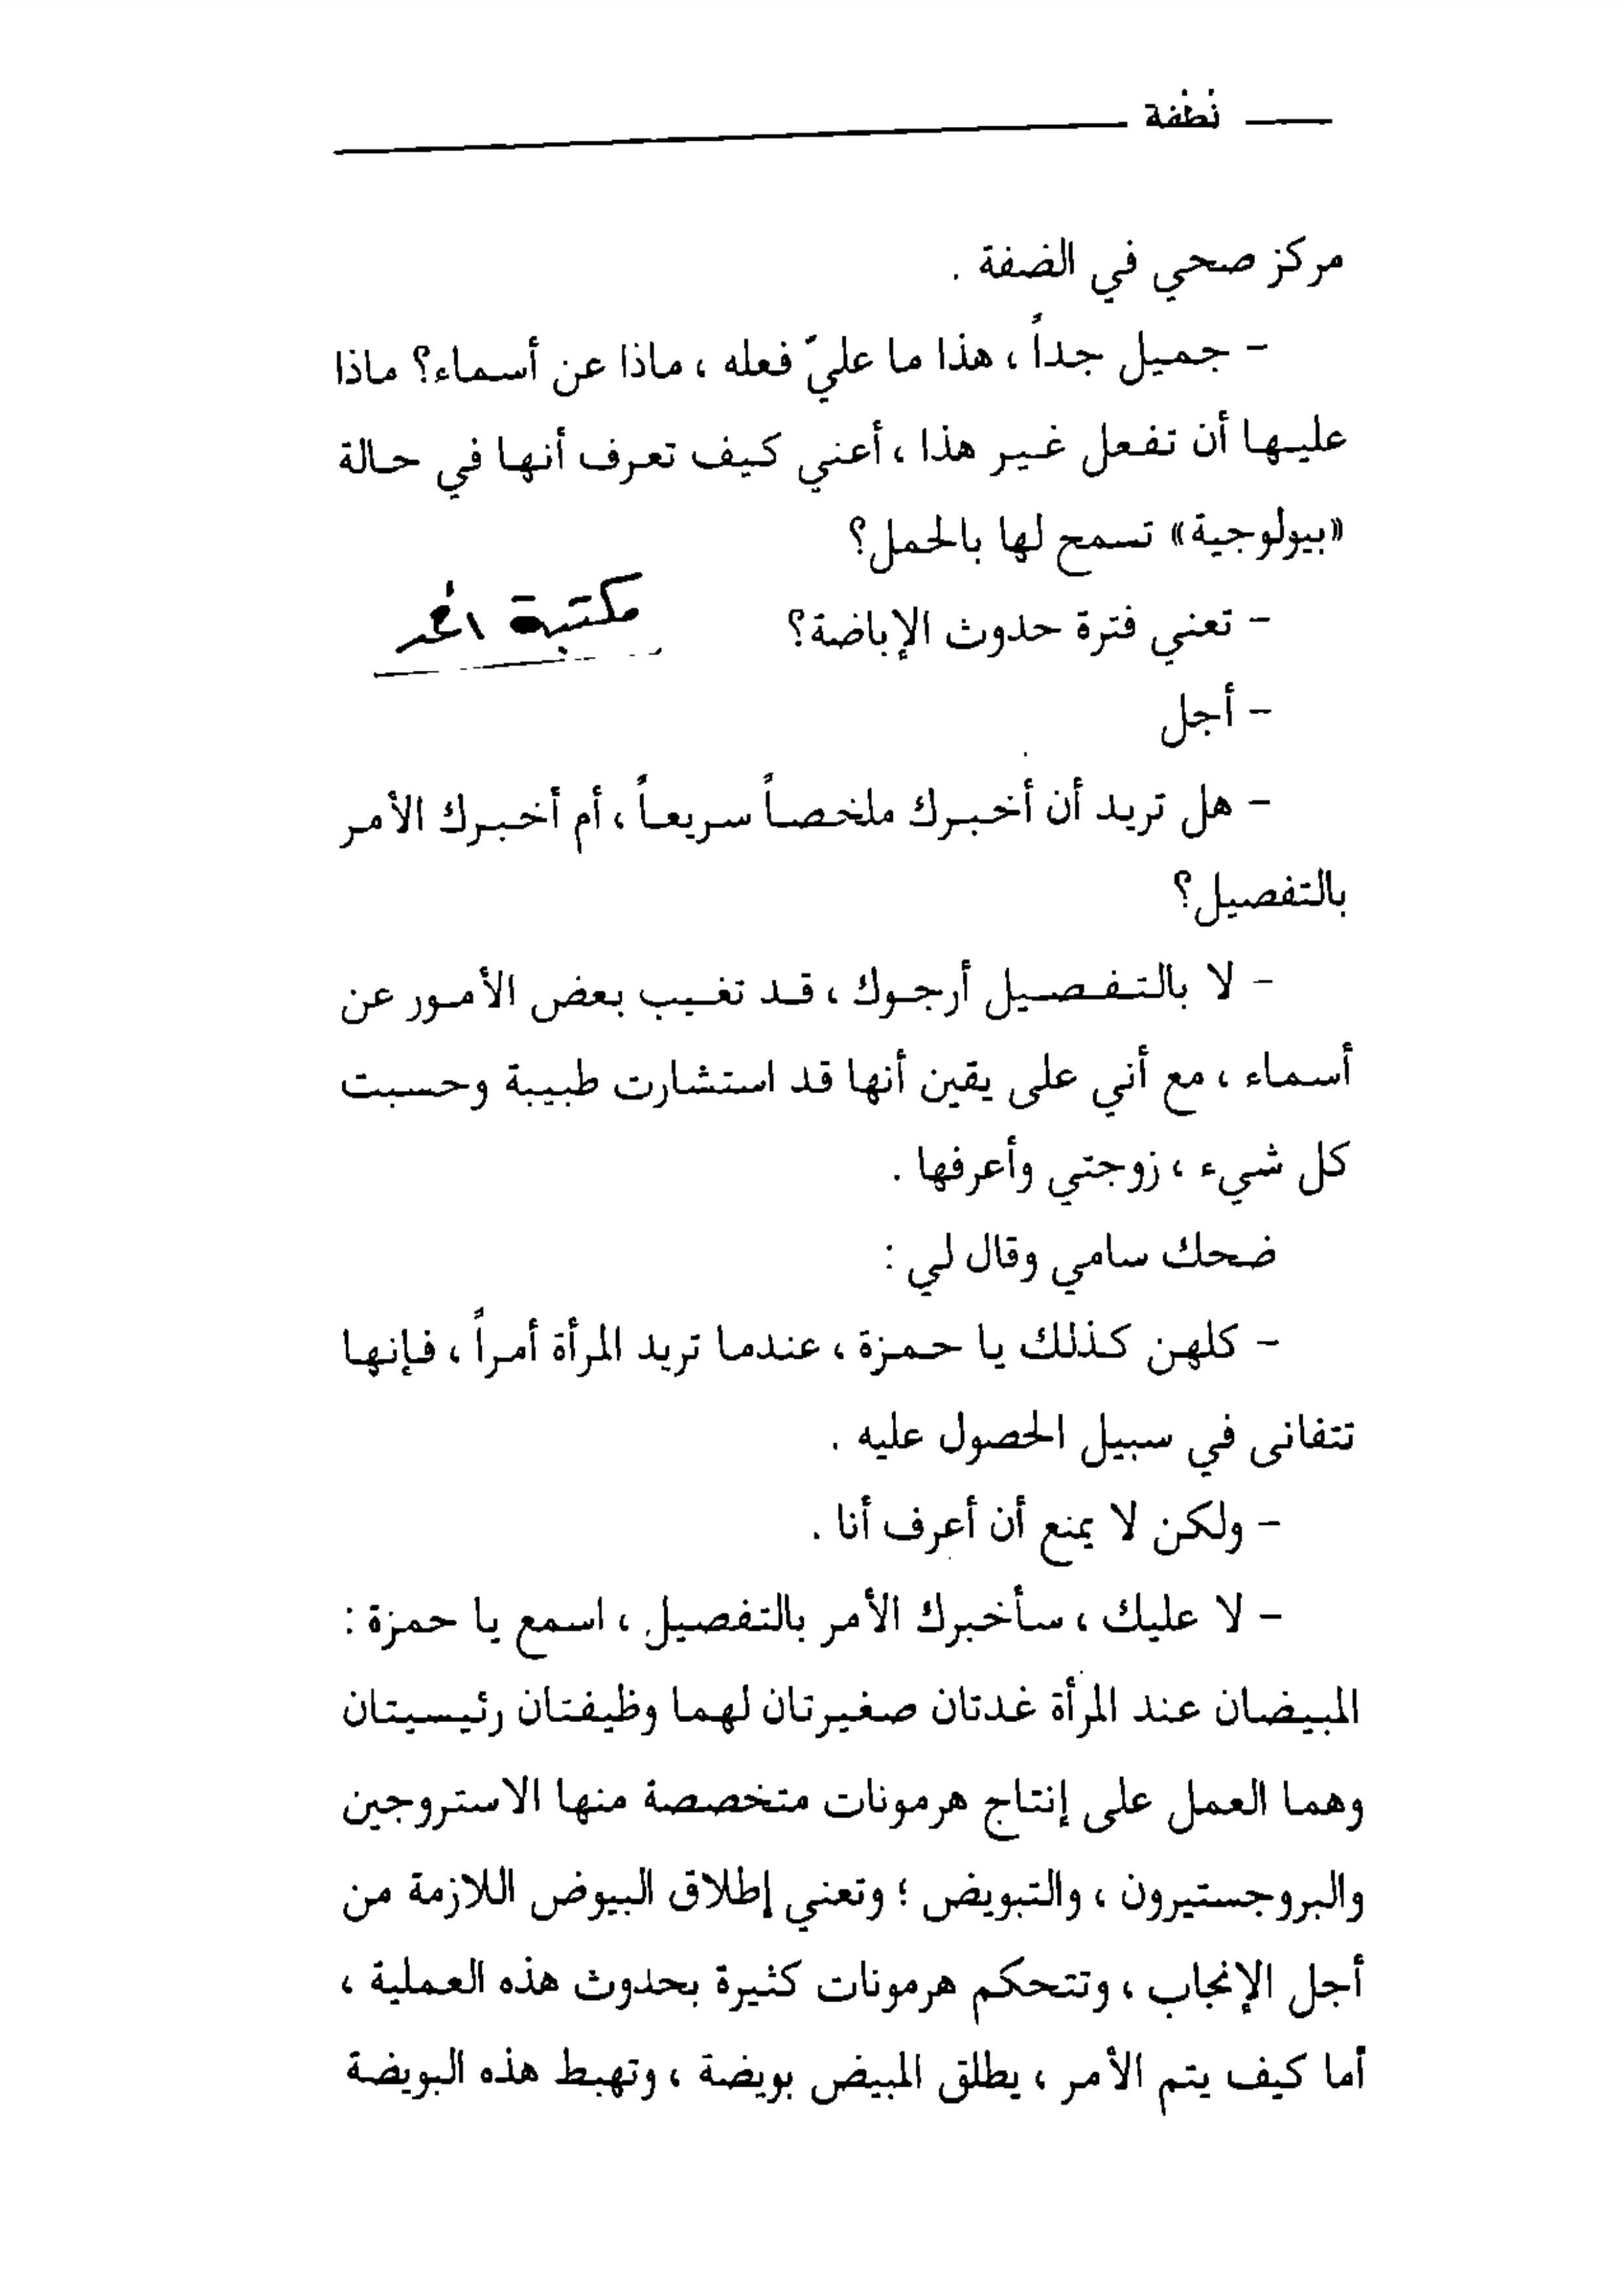 نطفة
مركز صحي في الضفة .
- جميل جداً ، هذا ما عليّ فعله ، ماذا عن أسماء؟ ماذا
عليها أن تفعل غير هذا ، أعني كيف تعرف أنها في حالة
«بيولوجية» تسمح لها بالحمل؟
- تعني فترة حدوث الإباضة؟
مكتبة
- أجل
- هل تريد أن أخبرك ملخصاً سريعاً ، أم أخبرك الأمر
بالتفصيل؟
- لا بالتفصيل أرجوك ، قد تغيب بعض الأمور عن
أسماء ، مع أني على يقين أنها قد استشارت طبيبة وحسبت
كل شيء ، زوجتي وأعرفها .
ضحك سامي وقال لي :
- كلهن كذلك يا حمزة ، عندما تريد المرأة أمراً ، فإنها
تتفانى في سبيل الحصول عليه .
- ولكن لا يمنع أن أعرف أنا .
- لا عليك ، سأخبرك الأمر بالتفصيل ، اسمع يا حمزة :
المبيضان عند المرأة غدتان صغيرتان لهما وظيفتان رئيسيتان
وهما العمل على إنتاج هرمونات متخصصة منها الاستروجين
والبروجستيرون ، والتبويض ؛ وتعني إطلاق البيوض اللازمة من
أجل الإنجاب ، وتتحكم هرمونات كثيرة بحدوث هذه العملية ،
أما كيف يتم الأمر ، يطلق المبيض بويضة ، وتهبط هذه البويضة